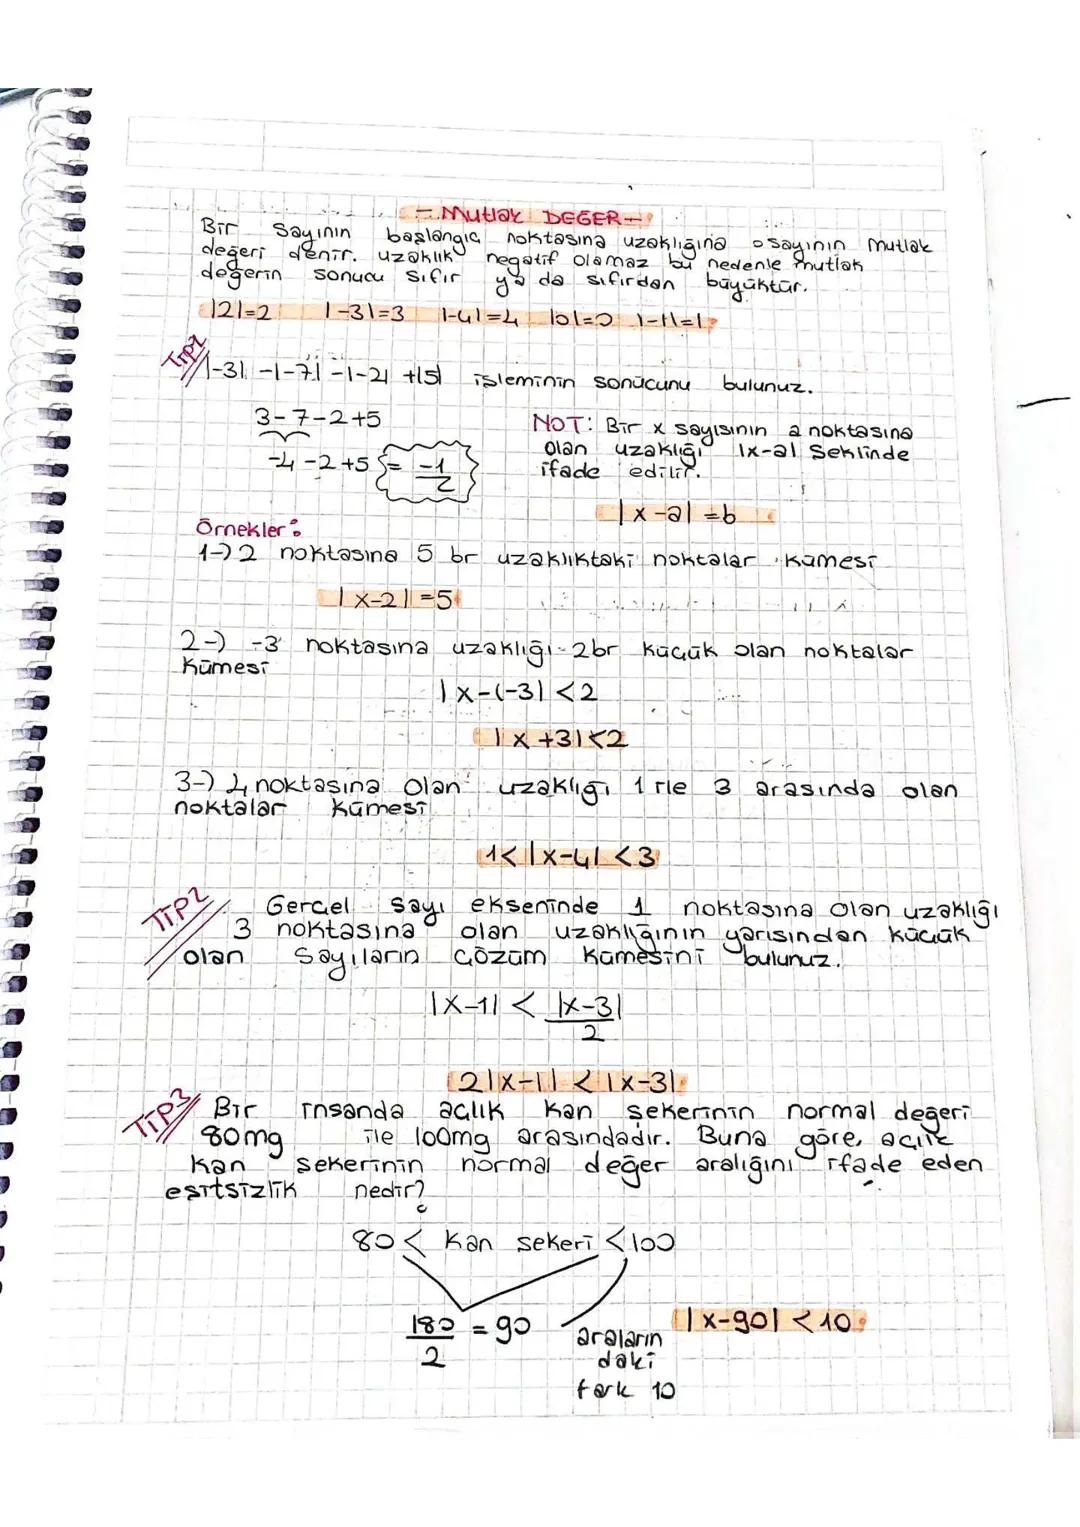 - Mutlak DEĞER -
Bir sayının başlangıç noktasına uzaklığına o sayının mutlak
değeri denir. uzaklık negatif olamaz bu nedenle mutlak
değerin sonucu sıfır ya da sıfırdan büyüktür.
|2|=2 |-3|=3 |-4|=4 |0|=0 |-1|=1
Tip1
|-3| -|-7| -|-2| +|5| işleminin sonucunu bulunuz.
3-7-2+5
-4-2+5 = -1
2
NOT: Bir x sayısının a noktasına
olan uzaklığı |x-a| şeklinde
ifade edilir.
|x-a|=b
Örnekler:
1-) 2 noktasına 5 br uzaklıktaki noktalar kümesi
|x-2|=5
2-) -3 noktasına uzaklığı 2br küçük olan noktalar
kümesi
|x-(-3)|<2
|x+3|<2
3-) 4 noktasına olan uzaklığı 1 ile 3 arasında olan
noktalar kümesi
1<|x-4|<3
Tip2
Gerçel sayı ekseninde 1 noktasına olan uzaklığı
3 noktasına olan uzaklığının yarısından küçük
olan sayıların çözüm kümesini bulunuz.
|x-1| < |x-3|
2
2|x-1| < |x-3|
Tip3
Bir insanda açlık kan şekerinin normal değeri
80mg ile 100mg arasındadır. Buna göre, açlık
kan şekerinin normal değer aralığını ifade eden
eşitsizlik nedir?
80 < kan şekeri < 100
180 = 90
2
araların
daki
fark 10
|x-90| < 10